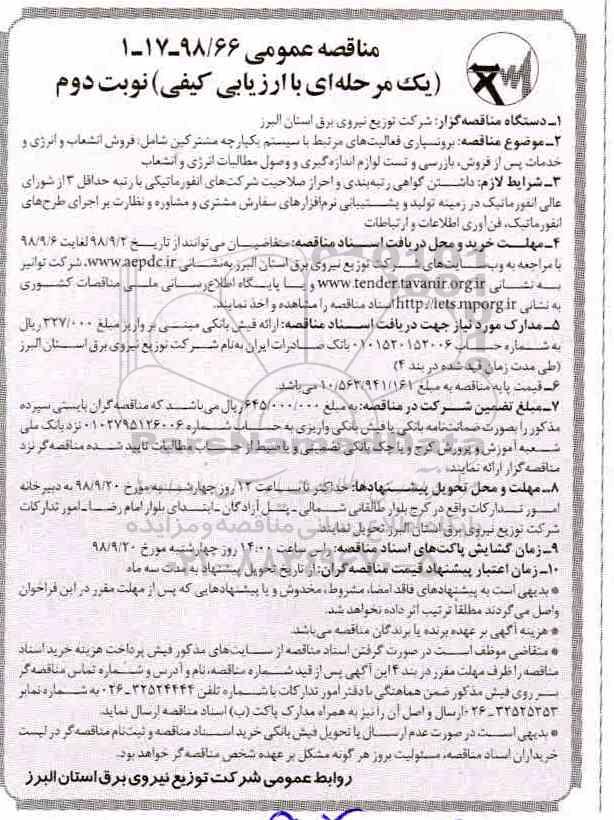 مناقصه عمومی ۹۸/۶۶-۱۷-۱
(یک مرحله‌ای با ارزیابی کیفی) نوبت دوم
۱ـ دستگاه مناقصه‌گزار: شرکت توزیع نیروی برق استان البرز
۲ـ موضوع مناقصه: برونسپاری فعالیت‌های مرتبط با سیستم یکپارچه مشترکین شامل: فروش انشعاب و انرژی و
خدمات پس از فروش، بازرسی و تست لوازم اندازه‌گیری و وصول مطالبات انرژی و انشعاب
۳ـ شرایط لازم: داشتن گواهی رتبه‌بندی و احراز صلاحیت شرکت‌های انفورماتیکی با رتبه حداقل ۳ از شورای
عالی انفورماتیک در زمینه تولید و پشتیبانی نرم‌افزارهای سفارش مشتری و مشاوره و نظارت بر اجرای طرح‌های
انفورماتیک، فن‌آوری اطلاعات و ارتباطات
۴ـ مهلت خرید و محل دریافت اسناد مناقصه: متقاضیان می‌توانند از تاریخ ۹۸/۹/۲ لغایت ۹۸/۹/۶
با مراجعه به وب‌سایت‌های شرکت توزیع نیروی برق استان البرز به‌نشانی www.aepdc.ir، شرکت توانیر
به نشانی www.tender.tavanir.org.ir و یا پایگاه اطلاع‌رسانی ملی مناقصات کشوری
به نشانی http://iets.mporg.ir اسناد مناقصه را مشاهده و اخذ نمایند.
۵ـ مدارک مورد نیاز جهت دریافت اسناد مناقصه: ارائه فیش بانکی مبنی بر واریز مبلغ ۳۲۷/۰۰۰ ریال
به شماره حساب ۰۱۰۱۵۲۰۱۵۲۰۰۶ بانک صادرات ایران به‌نام شرکت توزیع نیروی برق استان البرز
(طی مدت زمان قید شده در بند ۴)
۶ـ قیمت پایه مناقصه به مبلغ ۱۰/۵۶۳/۹۴۱/۱۶۱ می‌باشد.
۷ـ مبلغ تضمین شرکت در مناقصه: به مبلغ ۶۴۵/۰۰۰/۰۰۰ ریال می‌باشد که مناقصه‌گران بایستی سپرده
مذکور را بصورت ضمانت‌نامه بانکی یا فیش بانکی واریزی به حساب شماره ۰۱۰۲۷۹۵۱۲۶۰۰۶ نزد بانک ملی
شعبه آموزش و پرورش کرج و یا چک بانکی تضمینی و یا ضبط از حساب مطالبات تایید شده مناقصه‌گر نزد
مناقصه‌گزار ارائه نمایند.
۸ـ مهلت و محل تحویل پیشنهادها: حداکثر تا ساعت ۱۲ روز چهارشنبه مورخ ۹۸/۹/۲۰ به دبیرخانه
امور تدارکات واقع در کرج بلوار طالقانی شمالی - پشتل آزادگان - ابتدای بلوار امام رضا - امور تدارکات
شرکت توزیع نیروی برق استان البرز تحویل نمایند
۹ـ زمان گشایش پاکت‌های اسناد مناقصه: راس ساعت ۱۴:۰۰ روز چهارشنبه مورخ ۹۸/۹/۲۰
۱۰ـ زمان اعتبار پیشنهاد قیمت مناقصه‌گران: از تاریخ تحویل پیشنهاد به مدت سه ماه
* بدیهی است به پیشنهادهای فاقد امضا، مشروط، مخدوش و یا پیشنهادهایی که پس از مهلت مقرر در این فراخوان
واصل می‌گردند مطلقا ترتیب اثر داده نخواهد شد.
* هزینه آگهی بر عهده برنده یا برندگان مناقصه می‌باشد.
* متقاضی موظف است در صورت گرفتن اسناد مناقصه از سایت‌های مذکور فیش پرداخت هزینه خرید اسناد
مناقصه را ظرف مهلت مقرر در بند ۴ این آگهی پس از قید شماره مناقصه، نام و آدرس و شماره تماس مناقصه‌گر
بر روی فیش مذکور ضمن هماهنگی با دفتر امور تدارکات با شماره تلفن ۳۲۵۲۴۴۴۴-۰۲۶ به شماره نمابر
۳۲۵۲۵۳۵۳-۰۲۶ ارسال و اصل آن را نیز به همراه مدارک پاکت (ب) اسناد مناقصه ارسال نماید.
* بدیهی است در صورت عدم ارسال یا تحویل فیش بانکی خرید اسناد مناقصه و ثبت‌نام مناقصه‌گر در لیست
خریداران اسناد مناقصه، مسئولیت بروز هر گونه مشکل بر عهده شخص مناقصه‌گر خواهد بود.
روابط عمومی شرکت توزیع نیروی برق استان البرز
ParsNamadData